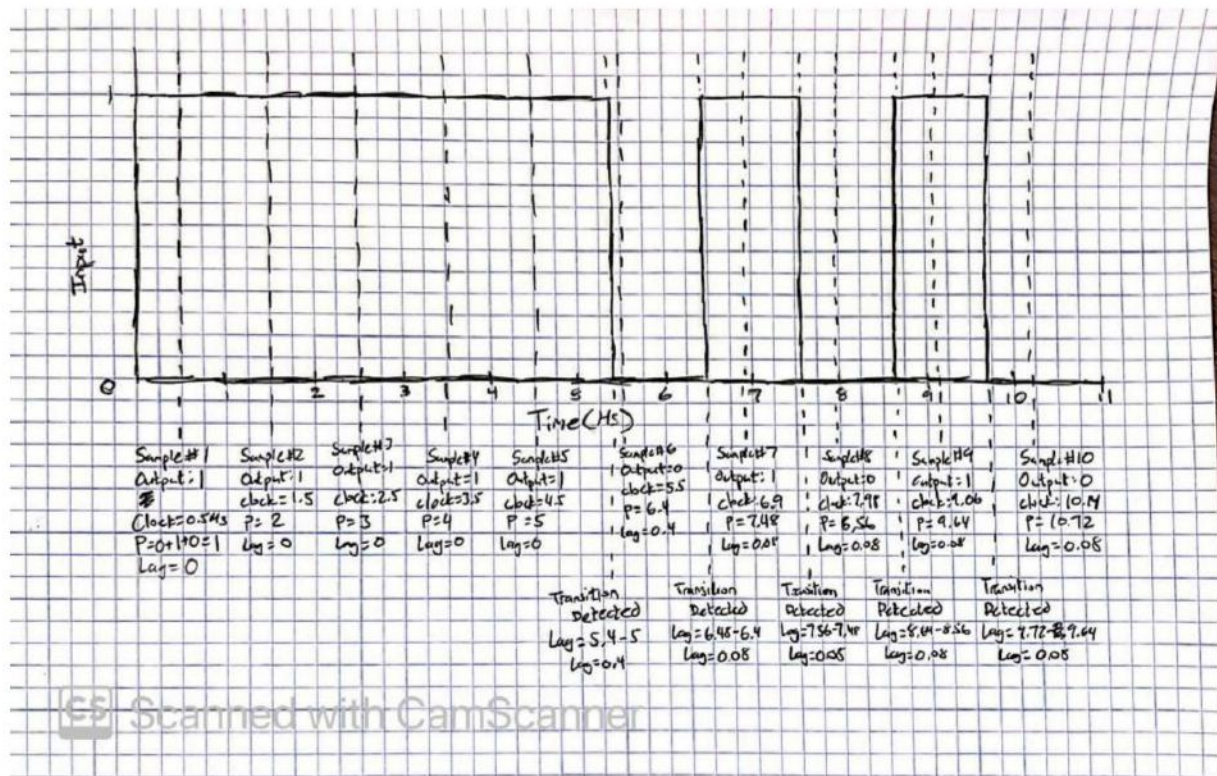 1
Input
0
2
3
4
5
6
7
8
9
10
11
Time (Hs)
Sample#1
Output: 1
Clock=0.5Hs
P=0+1+0=1
Lag= 0
Sample#2
Output: 1
clock = 1.5
P= 2
Lag = 0
Sample#3
Output: 1
clock:2.5
P=3
Lag=0
Sample#4
Output=1
clock=3.5
P=4
Lag=0
Sample#5
Output=1
clock=4.5
P=5
Lag=0
Sample#6
Output=0
clock=5.5
P= 6.4
Lag=0.4
Sample#7
Output: 1
clock:6.9
P=7.48
Lag=0.08
Sample#8
Output:0
clock:7.98
P= 8.56
Lag=0.08
Sample#9
Output:1
clock:9.06
P=9.64
Lag=0.08
Sample#10
Output: 0
clock: 10.14
P= 10.72
Lag=0.08
Transition
Detected
Lag=5.4-5
Lag=0.4
Transition
Detected
Lag=6.48-6.4
Lag=0.08
Transition
Detected
Lag=7.56-7.48
Lag=0.08
Transition
Detected
Lag=8.64-8.56
Lag=0.08
Transition
Detected
Lag=0.08
CS Scanned with CamScanner